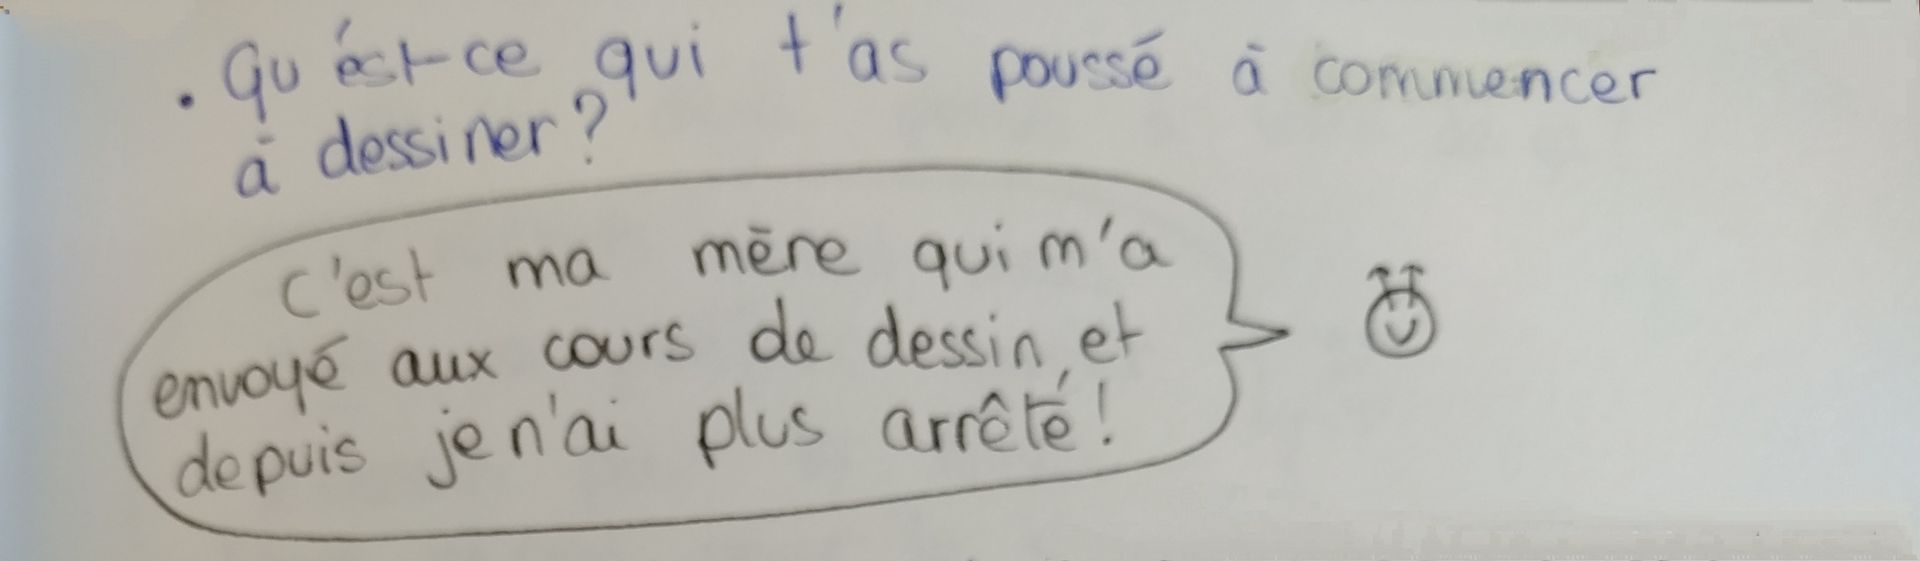 . Qu'est-ce qui t'as poussé à commencer
à dessiner?
C'est ma mère qui m'a
envoyé aux cours de dessin, et
depuis je n'ai plus arrêté!